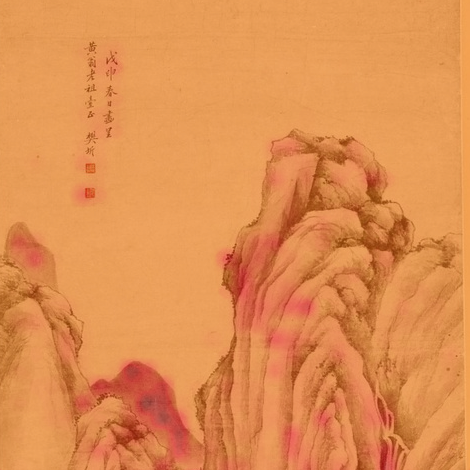 戊申春日畫呈
黃翁老祖臺正 樊圻